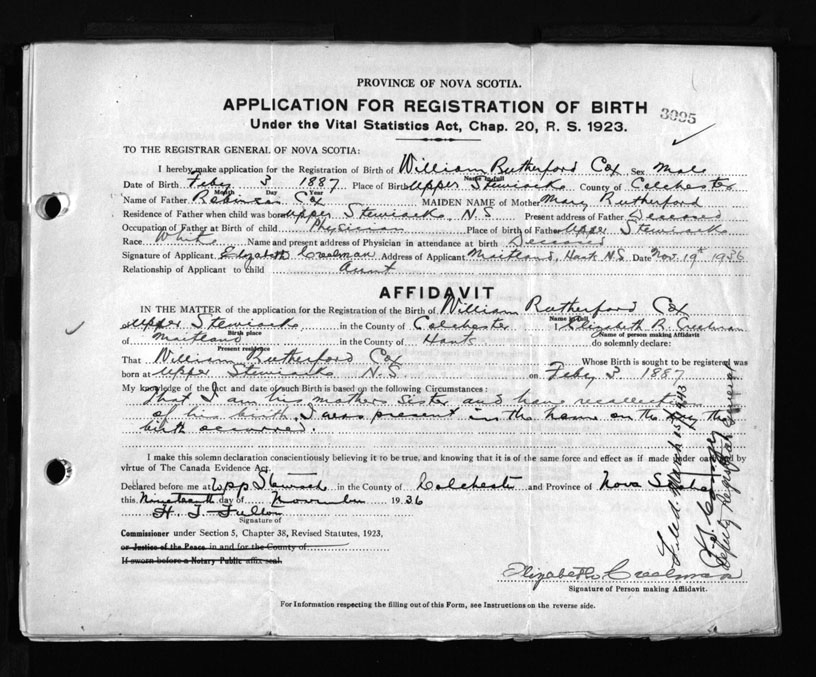 PROVINCE OF NOVA SCOTIA.
APPLICATION FOR REGISTRATION OF BIRTH
3095
Under the Vital Statistics Act, Chap. 20, R. S. 1923.
TO THE REGISTRAR GENERAL OF NOVA SCOTIA:
I hereby make application for the Registration of Birth of William Rutherford Cox Sex Male
Name in full
Date of Birth Feby 3 1887 Place of Birth Upper Stewiacke County of Colchester
Month Day Year
Name of Father Robinson Cox MAIDEN NAME of Mother Mary Rutherford
Residence of Father when child was born Upper Stewiacke, N.S Present address of Father Deceased
Occupation of Father at Birth of child Physician Place of birth of Father Upper Stewiacke
Race White Name and present address of Physician in attendance at birth Deceased
Signature of Applicant Elizabeth Creelman Address of Applicant Maitland, Hants N.S. Date Nov. 19th 1936
Relationship of Applicant to Child Aunt
AFFIDAVIT
IN THE MATTER of the application for the Registration of the Birth of William Rutherford Cox
Name in full
of Upper Stewiacke in the County of Colchester I Elizabeth R. Creelman
Birth place Name of person making Affidavit
of Maitland in the County of Hants do solemnly declare:
Present residence
That William Rutherford Cox Whose Birth is sought to be registered was
born at Upper Stewiacke N.S on Feby 3 1887
My knowledge of the Act and date of such Birth is based on the following Circumstances:
That I am his mothers sister and have recollection
of his birth. I was present in the home on the day the
birth occurred.
I make this solemn declaration conscientiously believing it to be true, and knowing that it is of the same force and effect as if made under oath by
virtue of The Canada Evidence Act.
Declared before me at Upp Stewiacke in the County of Colchester and Province of Nova Scotia
this Nineteenth day of November 1936
H. T. Fulton
Signature of
Commissioner under Section 5, Chapter 38, Revised Statutes, 1923,
or Justice of the Peace in and for the County of
If sworn before a Notary Public affix seal.
Elizabeth Creelman
Signature of Person making Affidavit.
For Information respecting the filling out of this Form, see Instructions on the reverse side.
Filed March 15 1943
Deputy Registrar General